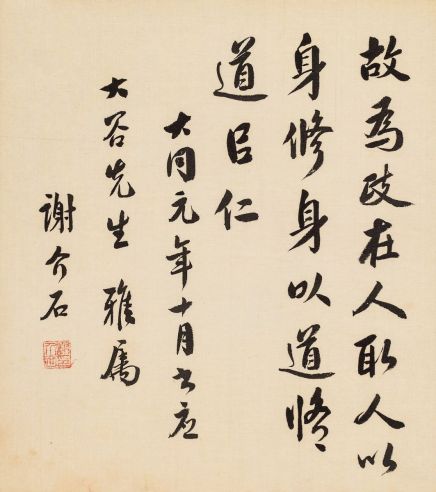 故為政在人取人以
身修身以道修
道㠯仁
大同元年十月書应
大谷先生 雅属
謝介石